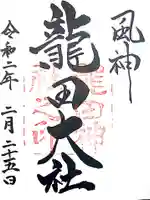 風神
龍田大社
令和二年 二月二十五日